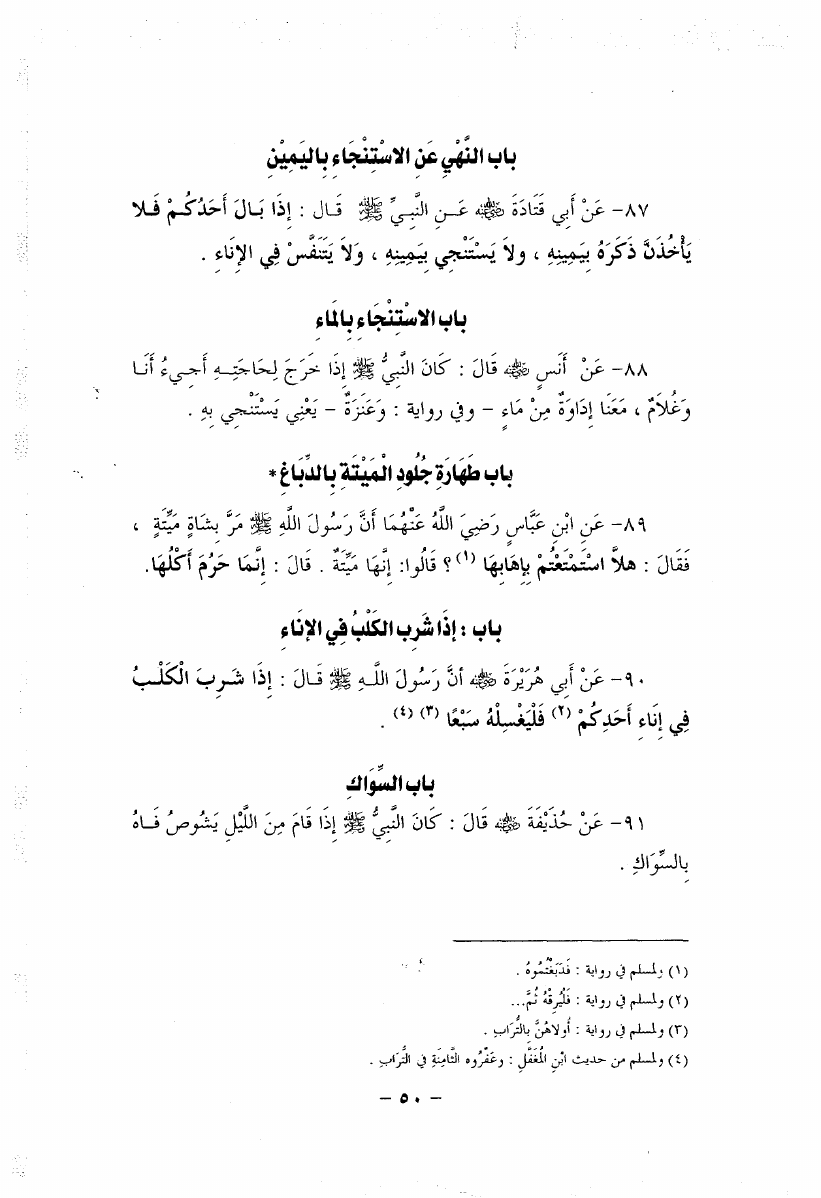 باب النَّهْيِ عَنِ الاسْتِنْجَاءِ بِاليَمِيْنِ
٨٧- عَنْ أَبِي قَتَادَةَ ﵁ عَـنِ النَّبِـيِّ ﷺ قَـال : إِذَا بَـالَ أَحَدُكُـمْ فَـلا
يَأْخُذَنَّ ذَكَرَهُ بِيَمِينِهِ ، ولاَ يَسْتَنْجِي بِيَمِينِهِ ، وَلاَ يَتَنَفَّسْ فِي الإِنَاءِ .
باب الاسْتِنْجَاءِ بِالمَاءِ
٨٨- عَنْ أَنَسٍ ﵁ قَالَ : كَانَ النَّبِيُّ ﷺ إِذَا خَرَجَ لِحَاجَتِـهِ أَجِـيءُ أَنَـا
وَغُلاَمٌ ، مَعَنَا إِدَاوَةٌ مِنْ مَاءٍ - وفي رواية : وَعَنَزَةٌ - يَعْنِي يَسْتَنْجِي بِهِ .
باب طَهَارَةِ جُلُودِ الْمَيْتَةِ بِالدِّبَاغِ *
٨٩- عَنِ ابْنِ عَبَّاسٍ رَضِيَ اللَّهُ عَنْهُمَا أَنَّ رَسُولَ اللَّهِ ﷺ مَرَّ بِشَاةٍ مَيِّتَةٍ ،
فَقَالَ : هلاَّ اسْتَمْتَعْتُمْ بِإِهَابِهَا (١) ؟ قَالُوا: إِنَّهَا مَيِّتَةٌ . قَالَ : إِنَّمَا حَرُمَ أَكْلُهَا.
باب : إِذَا شَرِب الكَلْبُ فِي الإِنَاءِ
٩٠- عَنْ أَبِي هُرَيْرَةَ ﵁ أنَّ رَسُولَ اللَّـهِ ﷺ قَـالَ : إِذَا شَـرِبَ الْكَلْـبُ
فِي إِنَاءِ أَحَدِكُمْ (٢) فَلْيَغْسِلْهُ سَبْعًا (٣) (٤) .
باب السِّوَاكِ
٩١- عَنْ حُذَيْفَةَ ﵁ قَالَ : كَانَ النَّبِيُّ ﷺ إِذَا قَامَ مِنَ اللَّيْلِ يَشُوصُ فَـاهُ
بِالسِّوَاكِ .
(١) ولمسلم في رواية : فَدَبَغْتُمُوهُ .
(٢) ولمسلم في رواية : فَلْيُرِقْهُ ثُمَّ...
(٣) ولمسلم في رواية : أُولاهُنَّ بالتُّرَابِ .
(٤) ولمسلم من حديث ابْنِ المُغَفَّلِ : وعَفِّرُوه الثَّامِنَةِ في التُّرَابِ .
- ٥٠ -